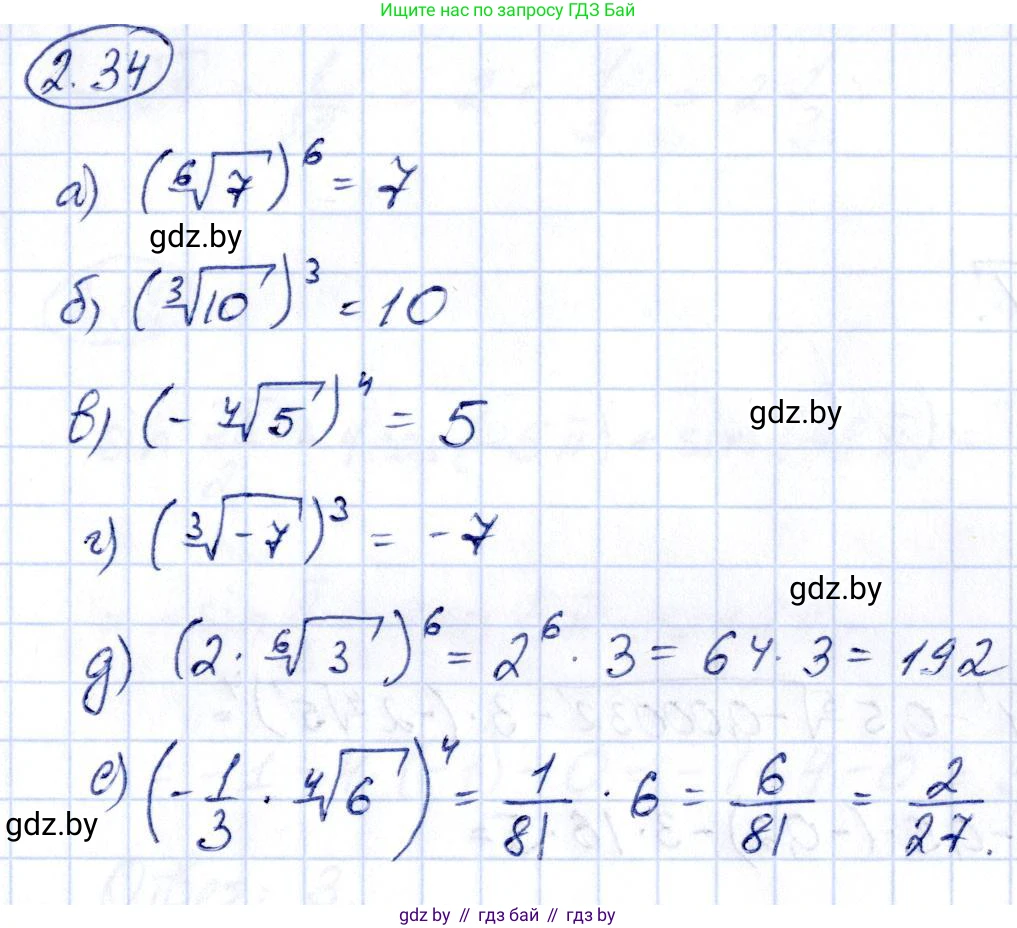 Ищите нас по запросу ГДЗ Бай
2.34
а) (⁶√7)⁶ = 7
gdz.by
б) (³√10)³ = 10
в) (- ⁴√5)⁴ = 5
gdz.by
г) (³√-7)³ = -7
gdz.by
д) (2 · ⁶√3)⁶ = 2⁶ · 3 = 64 · 3 = 192
е) (- 1/3 · ⁴√6)⁴ = 1/81 · 6 = 6/81 = 2/27.
gdz.by
gdz.by // гдз бай // гдз by